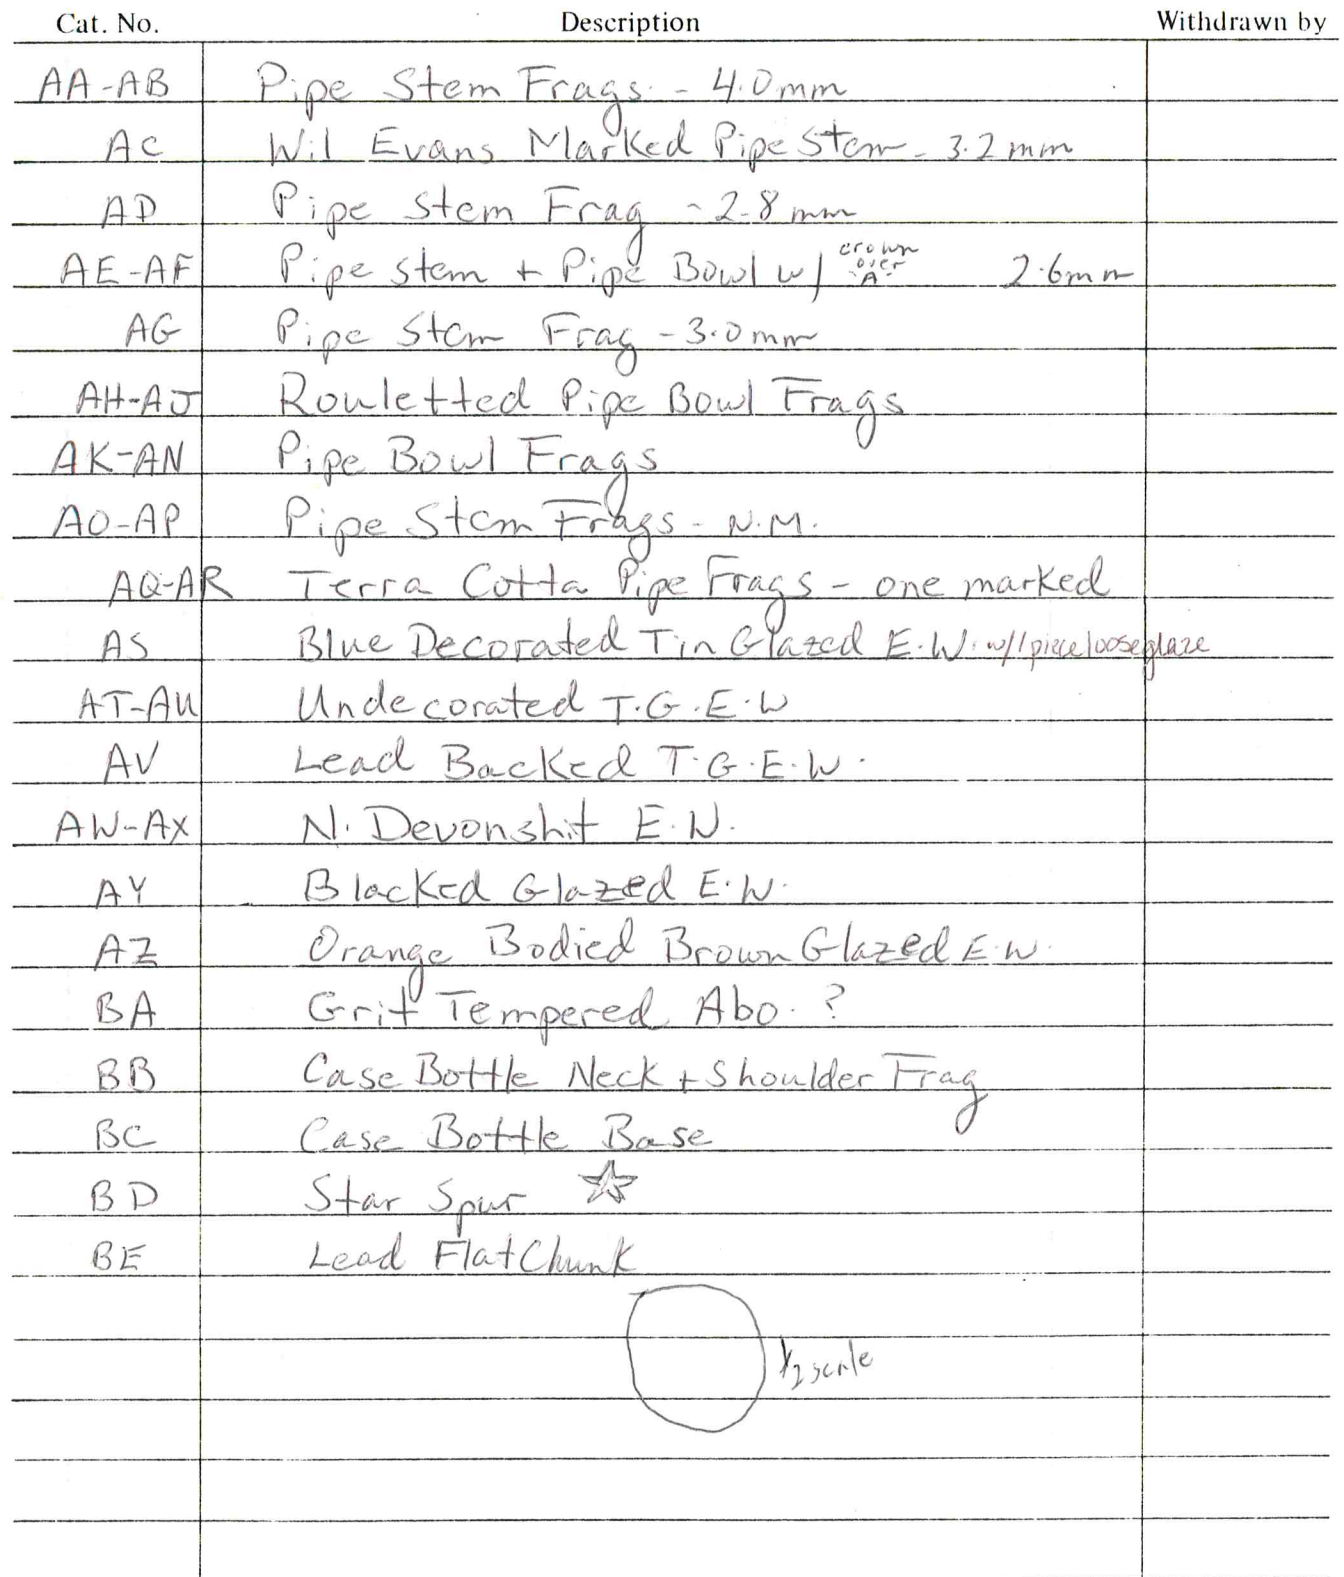 Cat. No. Description Withdrawn by
AA-AB Pipe Stem Frags - 4.0mm
AC Wil Evans Marked Pipe Stem - 3.2 mm
AD Pipe Stem Frag - 2.8 mm
AE-AF Pipe stem + Pipe Bowl w/ crown over "A" 2.6mm
AG Pipe Stem Frag - 3.0mm
AH-AJ Rouletted Pipe Bowl Frags
AK-AN Pipe Bowl Frags
AO-AP Pipe Stem Frags - N.M.
AQ-AR Terra Cotta Pipe Frags - one marked
AS Blue Decorated Tin Glazed E.W. w/1 piece loose glaze
AT-AU Undecorated T.G.E.W
AV Lead Backed T.G.E.W.
AW-AX N. Devonshit E.W.
AY Blacked Glazed E.W.
AZ Orange Bodied Brown Glazed E.W.
BA Grit Tempered Abo. ?
BB Case Bottle Neck + Shoulder Frag
BC Case Bottle Base
BD Star Spur
BE Lead Flat Chunk
1/2 scale